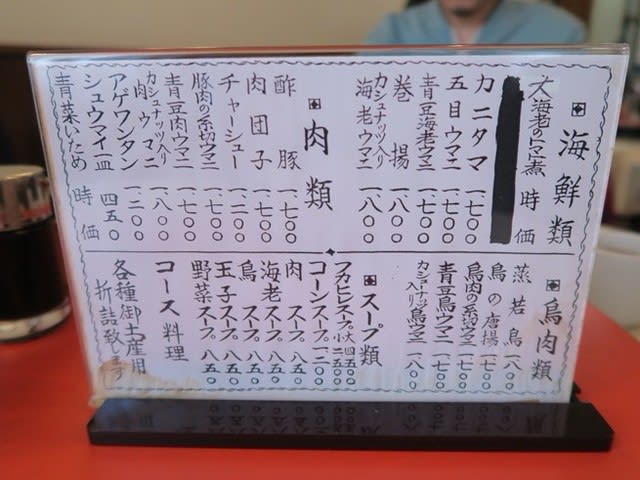 海鮮類
大海老のトマト煮 時価
カニタマ 一、七〇〇
五目ウマニ 一、七〇〇
青豆海老ウマニ 一、七〇〇
巻揚 一、八〇〇
カシュナッツ入り海老ウマニ 一、八〇〇
肉類
酢豚 一、七〇〇
肉団子 一、七〇〇
チャーシュー 一、二〇〇
豚肉の糸切ウマニ 一、七〇〇
青豆肉ウマニ 一、七〇〇
カシュナッツ入り肉ウマニ 一、八〇〇
アゲワンタン 一、二〇〇
シュウマイ一皿 四五〇
青菜いため 時価
鳥肉類
蒸若鳥 一、八〇〇
鳥の唐揚 一、七〇〇
鳥肉の糸切ウマニ 一、七〇〇
青豆鳥ウマニ 一、七〇〇
カシューナッツ入り鳥ウマニ 一、八〇〇
スープ類
フカヒレスープ 大 四五〇〇 小 二五〇〇
コーンスープ 一、二〇〇
肉スープ 八五〇
海老スープ 八五〇
鳥スープ 八五〇
玉子スープ 八五〇
野菜スープ 八五〇
コース料理
各種御土産用
折詰致します